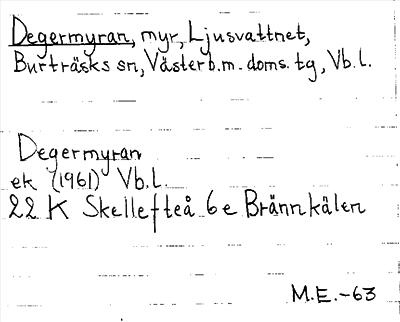 Degermyran, myr, Ljusvattnet,
Burträsks sn, Västerb.m. doms. tg, Vb.l.
Degermyran
ek (1961) Vb.l.
22 K Skellefteå 6e Brännkälen
M.E.-63